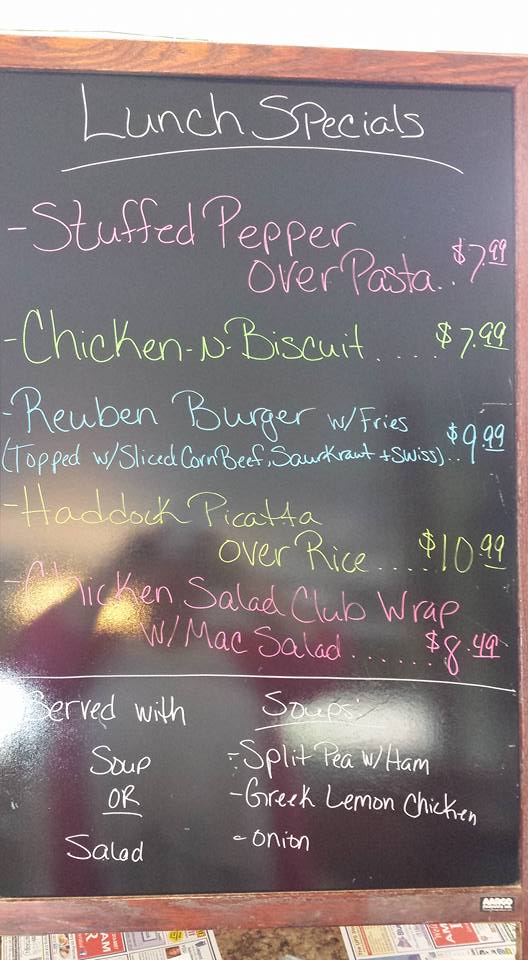 Lunch Specials
-Stuffed Pepper
over Pasta..$7.99
-Chicken-N-Biscuit....$7.99
-Reuben Burger w/Fries
(Topped w/Sliced Corn Beef, Saurkraut + Swiss)..$9.99
-Haddock Picatta
over Rice....$10.99
-Chicken Salad Club Wrap
w/Mac Salad......$8.49
Served with
Soup
OR
Salad
Soups:
-Split Pea w/Ham
-Greek Lemon Chicken
-onion
AARCO